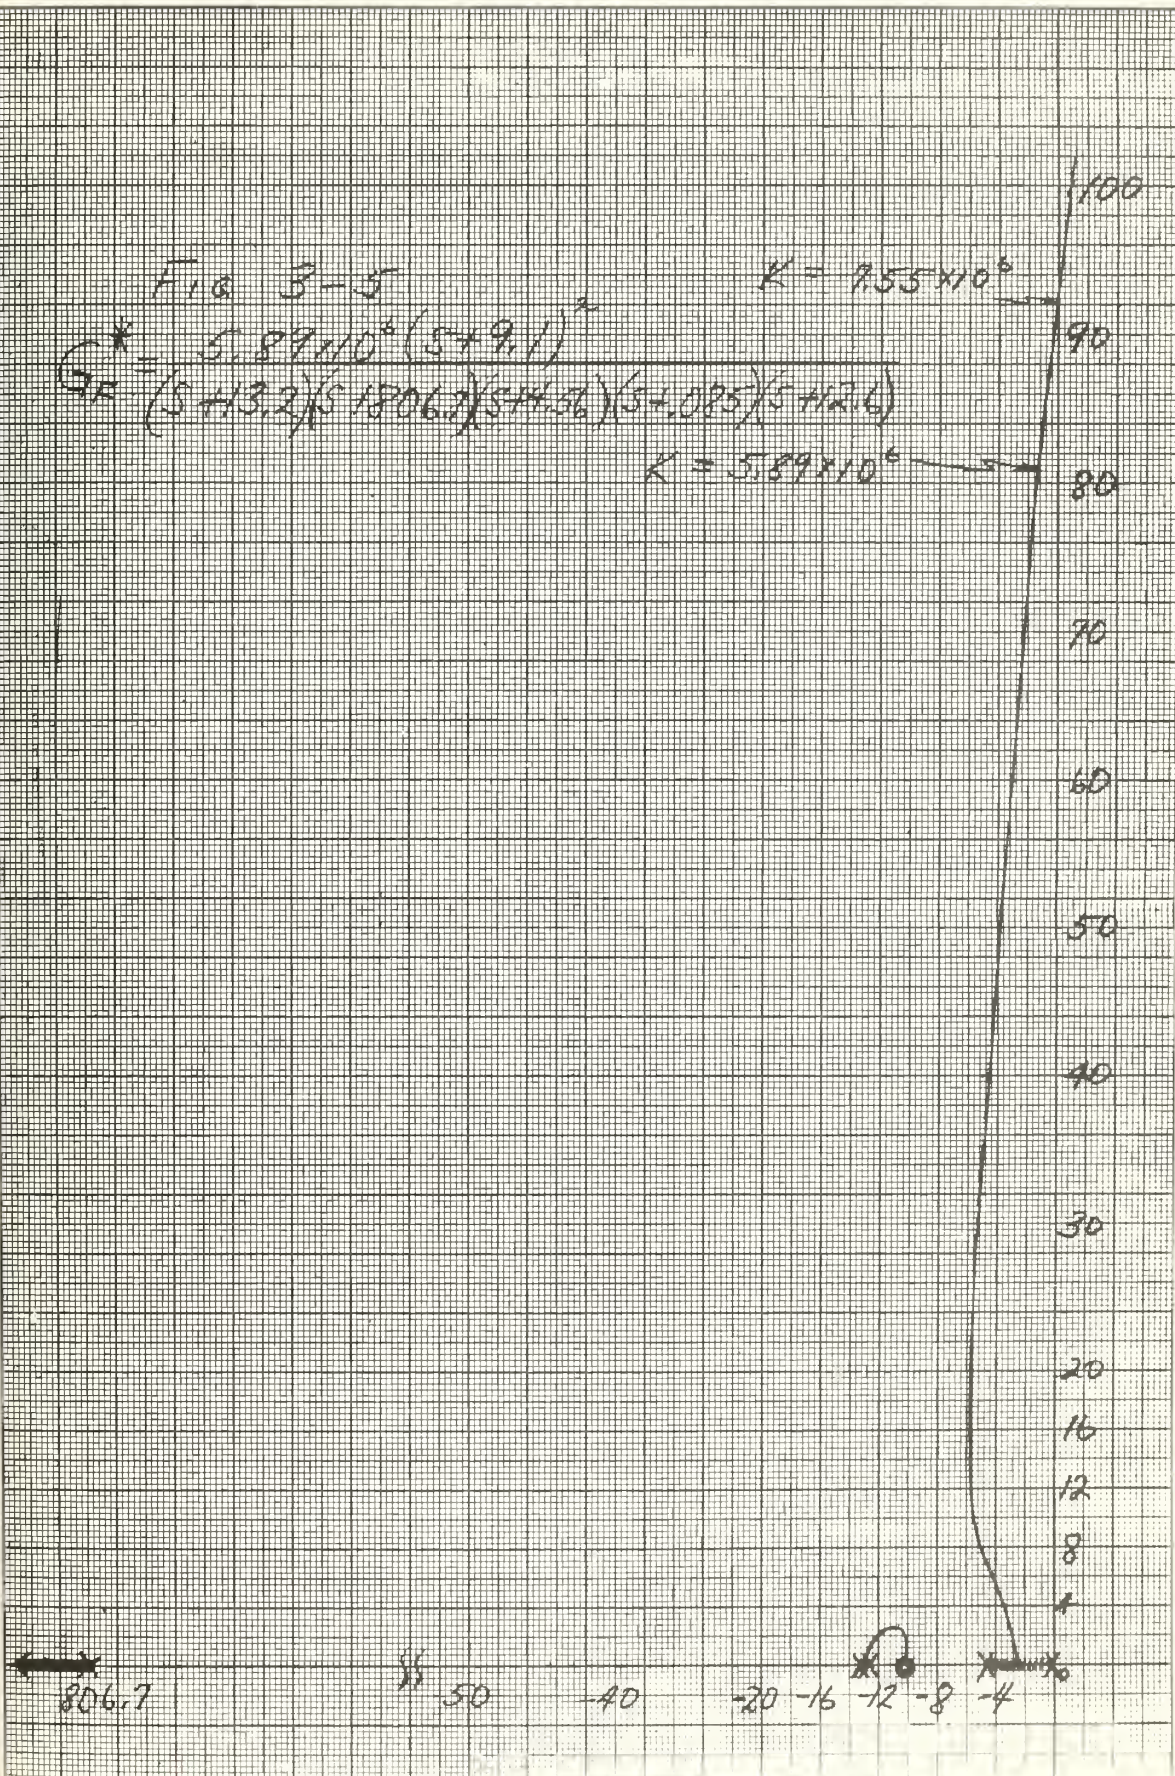 100
Fig 3-5
K = 7.55×10⁶
90
G_F* = 5.89×10⁶(S+9.1)²
(S+13.2)(S+806.7)(S+4.56)(S+.085)(S+12.6)
K = 5.89×10⁶
80
70
60
50
40
30
20
16
12
8
4
806.7 50 -40 -20 -16 -12 -8 -4 0